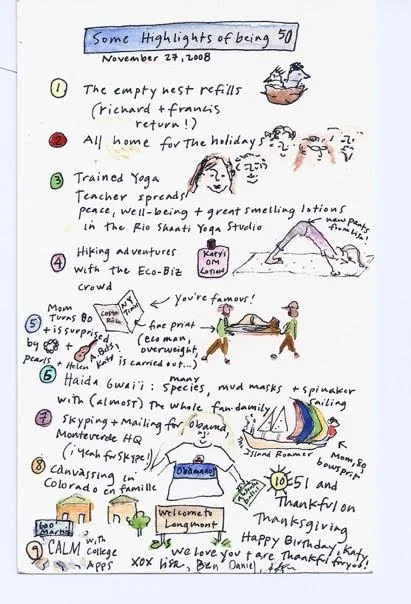 Some Highlights of being 50
November 27, 2008
1 The empty nest refills
(richard + francis
return!)
2 All home for The holidays
3 Trained Yoga
Teacher spreads
peace, well-being + great smelling lotions
in the Rio Shanti Yoga Studio
new pants
from Lisa!
4 Hiking adventures
with the Eco-Biz
crowd
KATY'S
OM
LOTION
5 Mom
Turns 80
+ is surprised
by
pearls
+ Helen
COSTA
RICA
NY
TIMES
you're famous!
fine print
(eco man,
overweight,
is carried out...)
6 Haida Gwaii: many species, mud masks + spinnaker
sailing
with (almost) The whole fan-damily
7 Skyping + Mailing for Obama
Monteverde HQ
(¡Yeah for Skype!)
The Island Roamer
Mom, 80
bowsprit
8 Canvassing in
Colorado en famille
Obamanos
Welcome to
Longmont
10 51 and
Thankful on
Thanksgiving
Happy Birthday, Katy
we love you + are Thankful for you!
xox Lisa, Ben Daniel,
9 CALM with
college
Apps